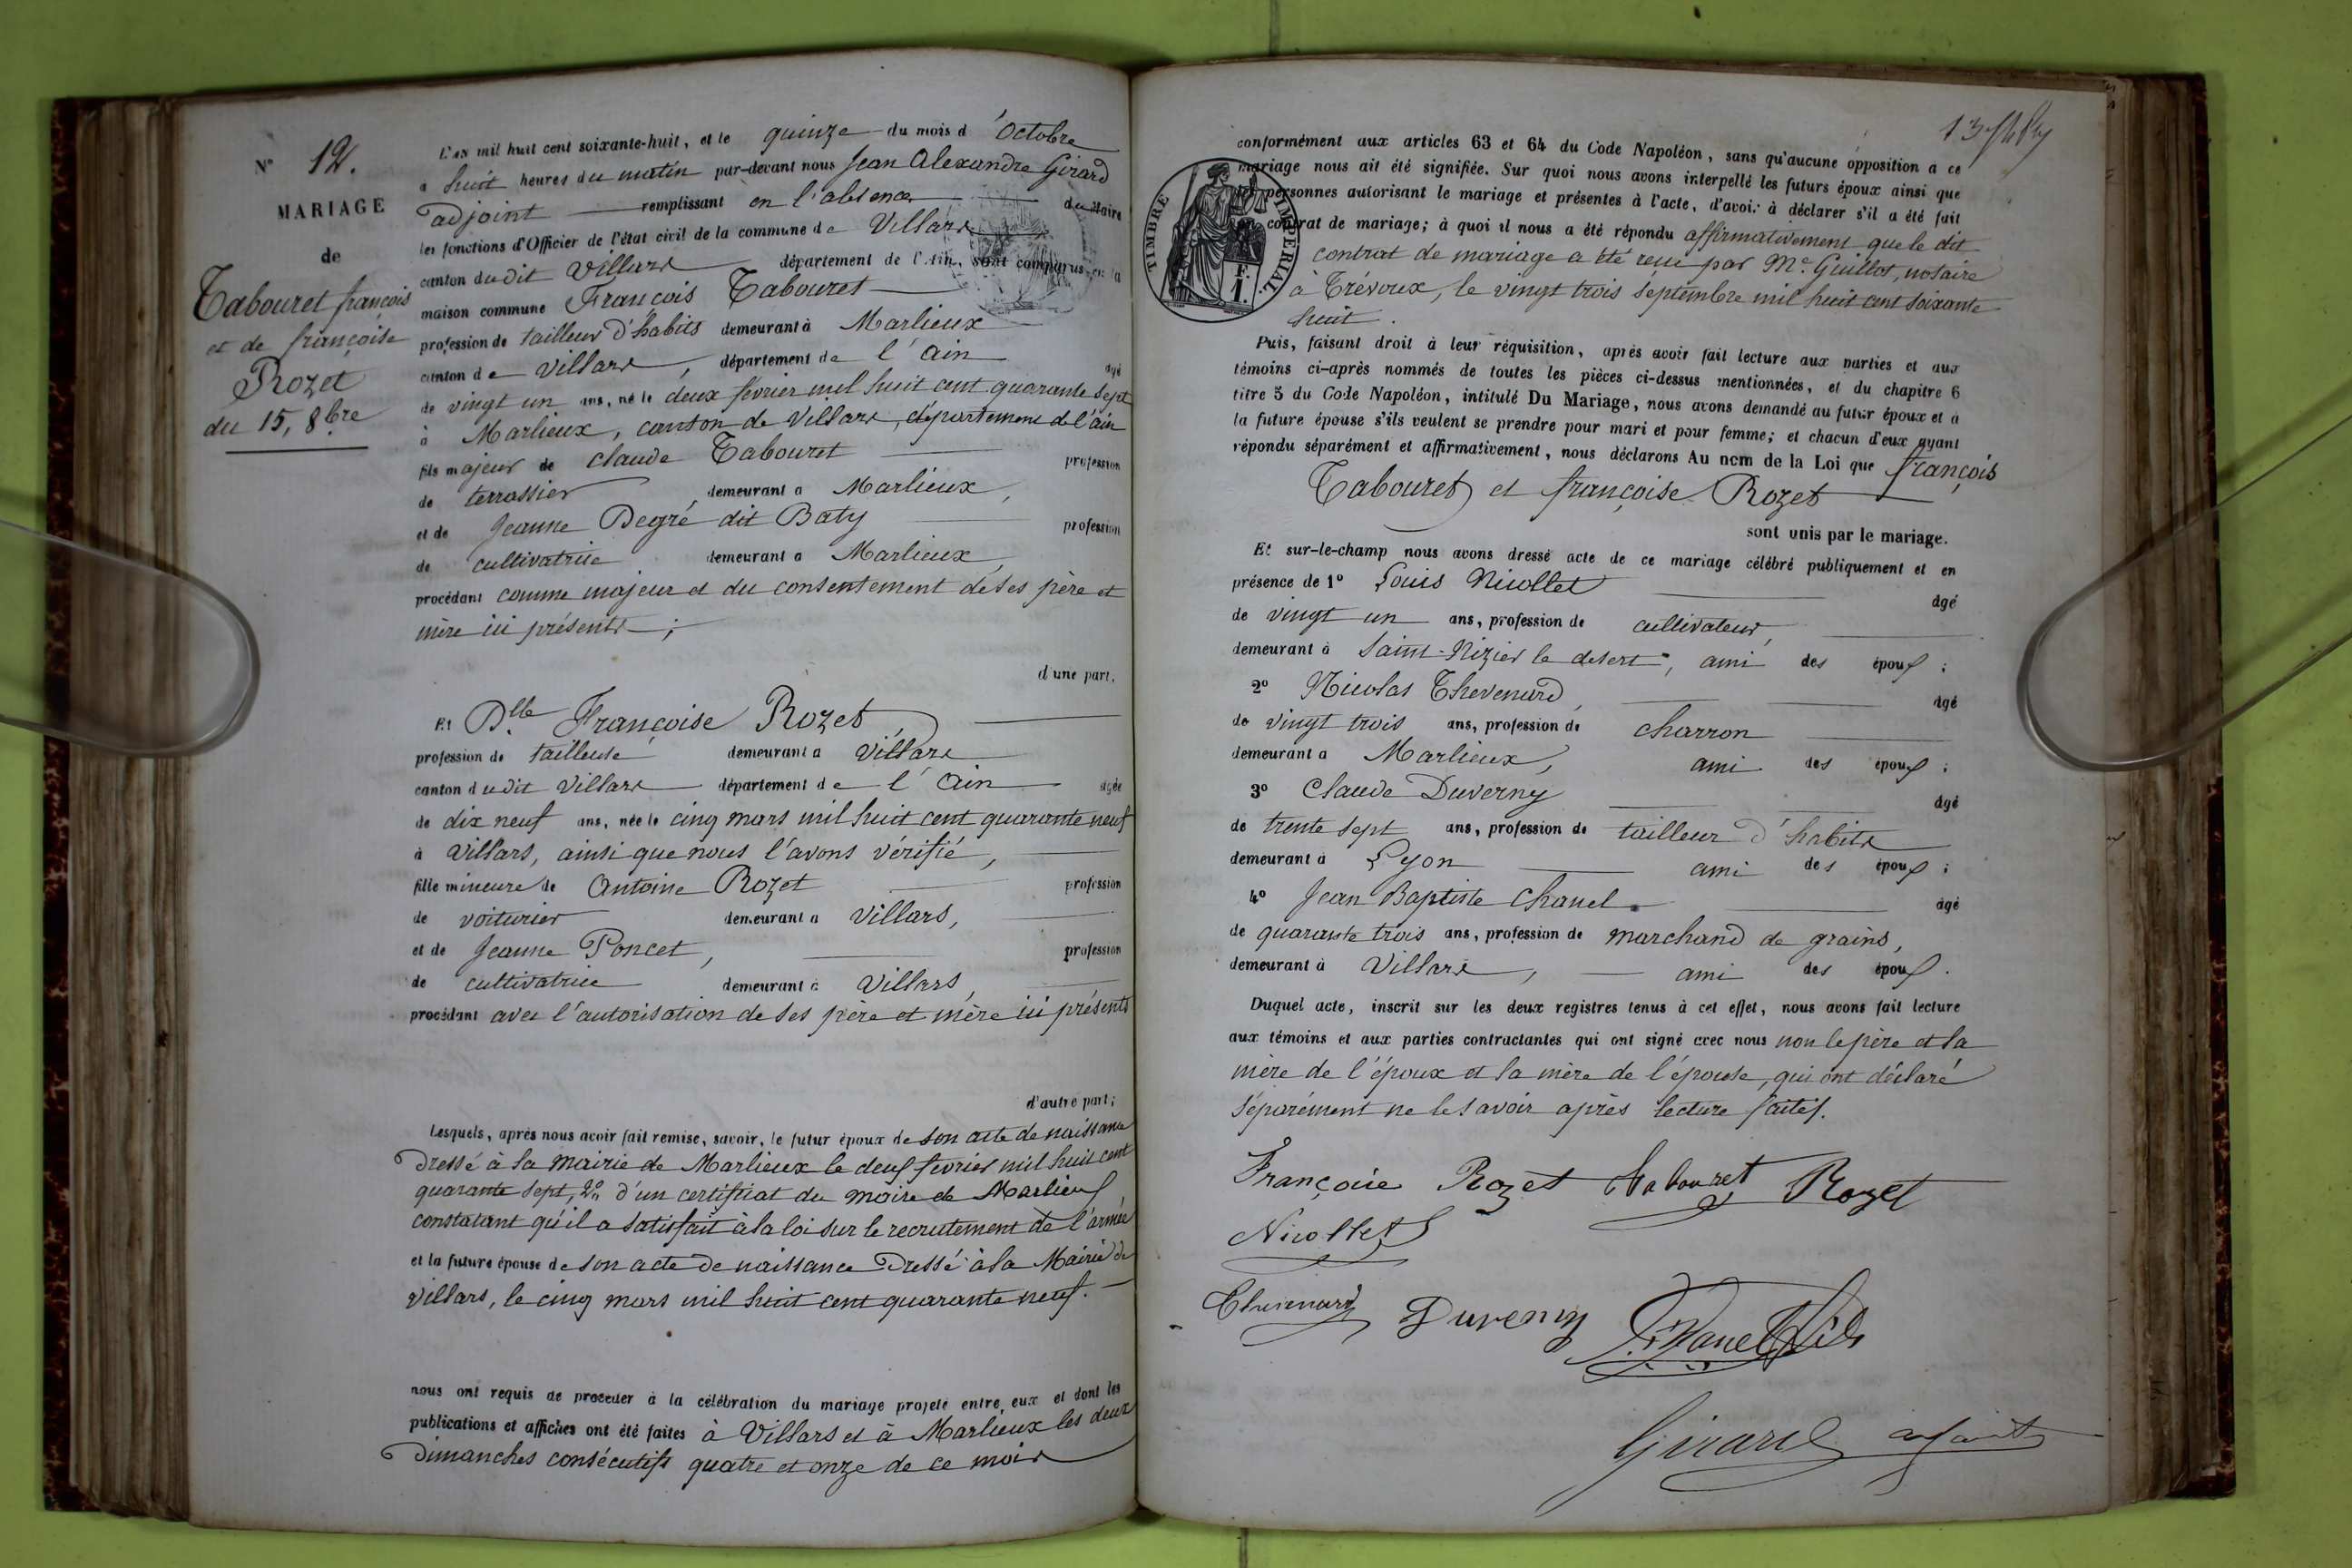 N° 12.
MARIAGE
de
Tabouret françois
et de françoise
Rozet
du 15, 8bre
L'an mil huit cent soixante-huit, et le quinze du mois d'Octobre
à huit heures du matin par-devant nous Jean Alexandre Girard
adjoint remplissant en l'absence du Maire
les fonctions d'Officier de l'état civil de la commune de Villars
canton dudit Villars département de l'Ain, sont comparus en la
maison commune François Tabouret
profession de tailleur d'habits demeurant à Marlieux
canton de Villars, département de l'Ain âgé
de vingt un ans, né le deux fevrier mil huit cent quarante sept
à Marlieux, canton de Villars, département de l'ain
fils majeur de Claude Tabouret profession
de terrassier, demeurant à Marlieux,
et de Jeanne Degré dit Baty profession
de cultivatrice demeurant à Marlieux,
procédant comme majeur et du consentement de ses père et
mère ici présents;
d'une part.
Et Dlle Françoise Rozet,
profession de tailleuse demeurant à Villars
canton dudit Villars département de l'Ain âgée
de dix neuf ans, née le cinq mars mil huit cent quarante neuf
à Villars, ainsi que nous l'avons vérifié,
fille mineure de Antoine Rozet profession
de voiturier demeurant à Villars,
et de Jeanne Poncet, profession
de cultivatrice demeurant à Villars,
procédant avec l'autorisation de ses père et mère ici présents
d'autre part;
Lesquels, après nous avoir fait remise, savoir, le futur époux de son acte de naissance
dressé à la mairie de Marlieux le deux fevrier mil huit cent
quarante sept, 2° d'un certificat du maire de Marlieux,
constatant qu'il a satisfait à la loi sur le recrutement de l'armée
et la future épouse de son acte de naissance dressé à la Mairie de
Villars, le cinq mars mil huit cent quarante neuf.
nous ont requis de procéder à la célébration du mariage projeté entre eux et dont les
publications et affiches ont été faites à Villars et à Marlieux les deux
dimanches consécutifs quatre et onze de ce mois
conformément aux articles 63 et 64 du Code Napoléon, sans qu'aucune opposition a ce
mariage nous ait été signifiée. Sur quoi nous avons interpellé les futurs époux ainsi que
personnes autorisant le mariage et présentes à l'acte, d'avoir à déclarer s'il a été fait
contrat de mariage; à quoi il nous a été répondu affirmativement que le dit
contrat de mariage a été reçu par Me Guillot, notaire
à Trévoux, le vingt trois septembre mil huit cent soixante
huit.
TIMBRE IMPERIAL.
E. I.
Puis, faisant droit à leur réquisition, après avoir fait lecture aux parties et aux
témoins ci-après nommés de toutes les pièces ci-dessus mentionnées, et du chapitre 6
titre 5 du Code Napoléon, intitulé Du Mariage, nous avons demandé au futur époux et à
la future épouse s'ils veulent se prendre pour mari et pour femme; et chacun d'eux ayant
répondu séparément et affirmativement, nous déclarons Au nom de la Loi que françois
Tabouret et françoise Rozet
sont unis par le mariage.
Et sur-le-champ nous avons dressé acte de ce mariage célébré publiquement et en
présence de 1° Louis Nicollet âgé
de vingt un ans, profession de cultivateur,
demeurant à Saint-Nizier le desert, ami des époux;
2° Nicolas Thevenard, âgé
de vingt trois ans, profession de charron
demeurant à Marlieux, ami des époux;
3° Claude Duverny âgé
de trente sept ans, profession de tailleur d'habits
demeurant à Lyon ami des époux;
4° Jean Baptiste Chanel âgé
de quarante trois ans, profession de marchand de grains,
demeurant à Villars, ami des époux.
Duquel acte, inscrit sur les deux registres tenus à cet effet, nous avons fait lecture
aux témoins et aux parties contractantes qui ont signé avec nous non le père et la
mère de l'époux et la mère de l'épouse, qui ont déclaré
séparément ne le savoir après lecture faites.
Françoise Rozet Tabouret Rozet
Nicollet
Thevenard Duverny Chanel fils
Girard adjoint